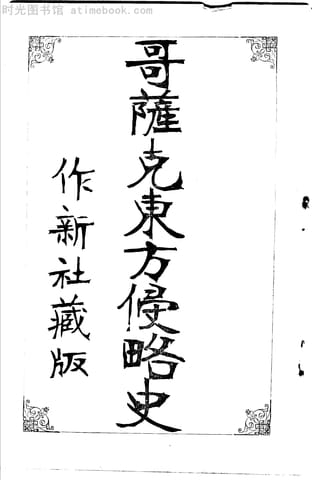 时光图书馆 atimebook.com
哥薩克東方侵略史
作新社藏版